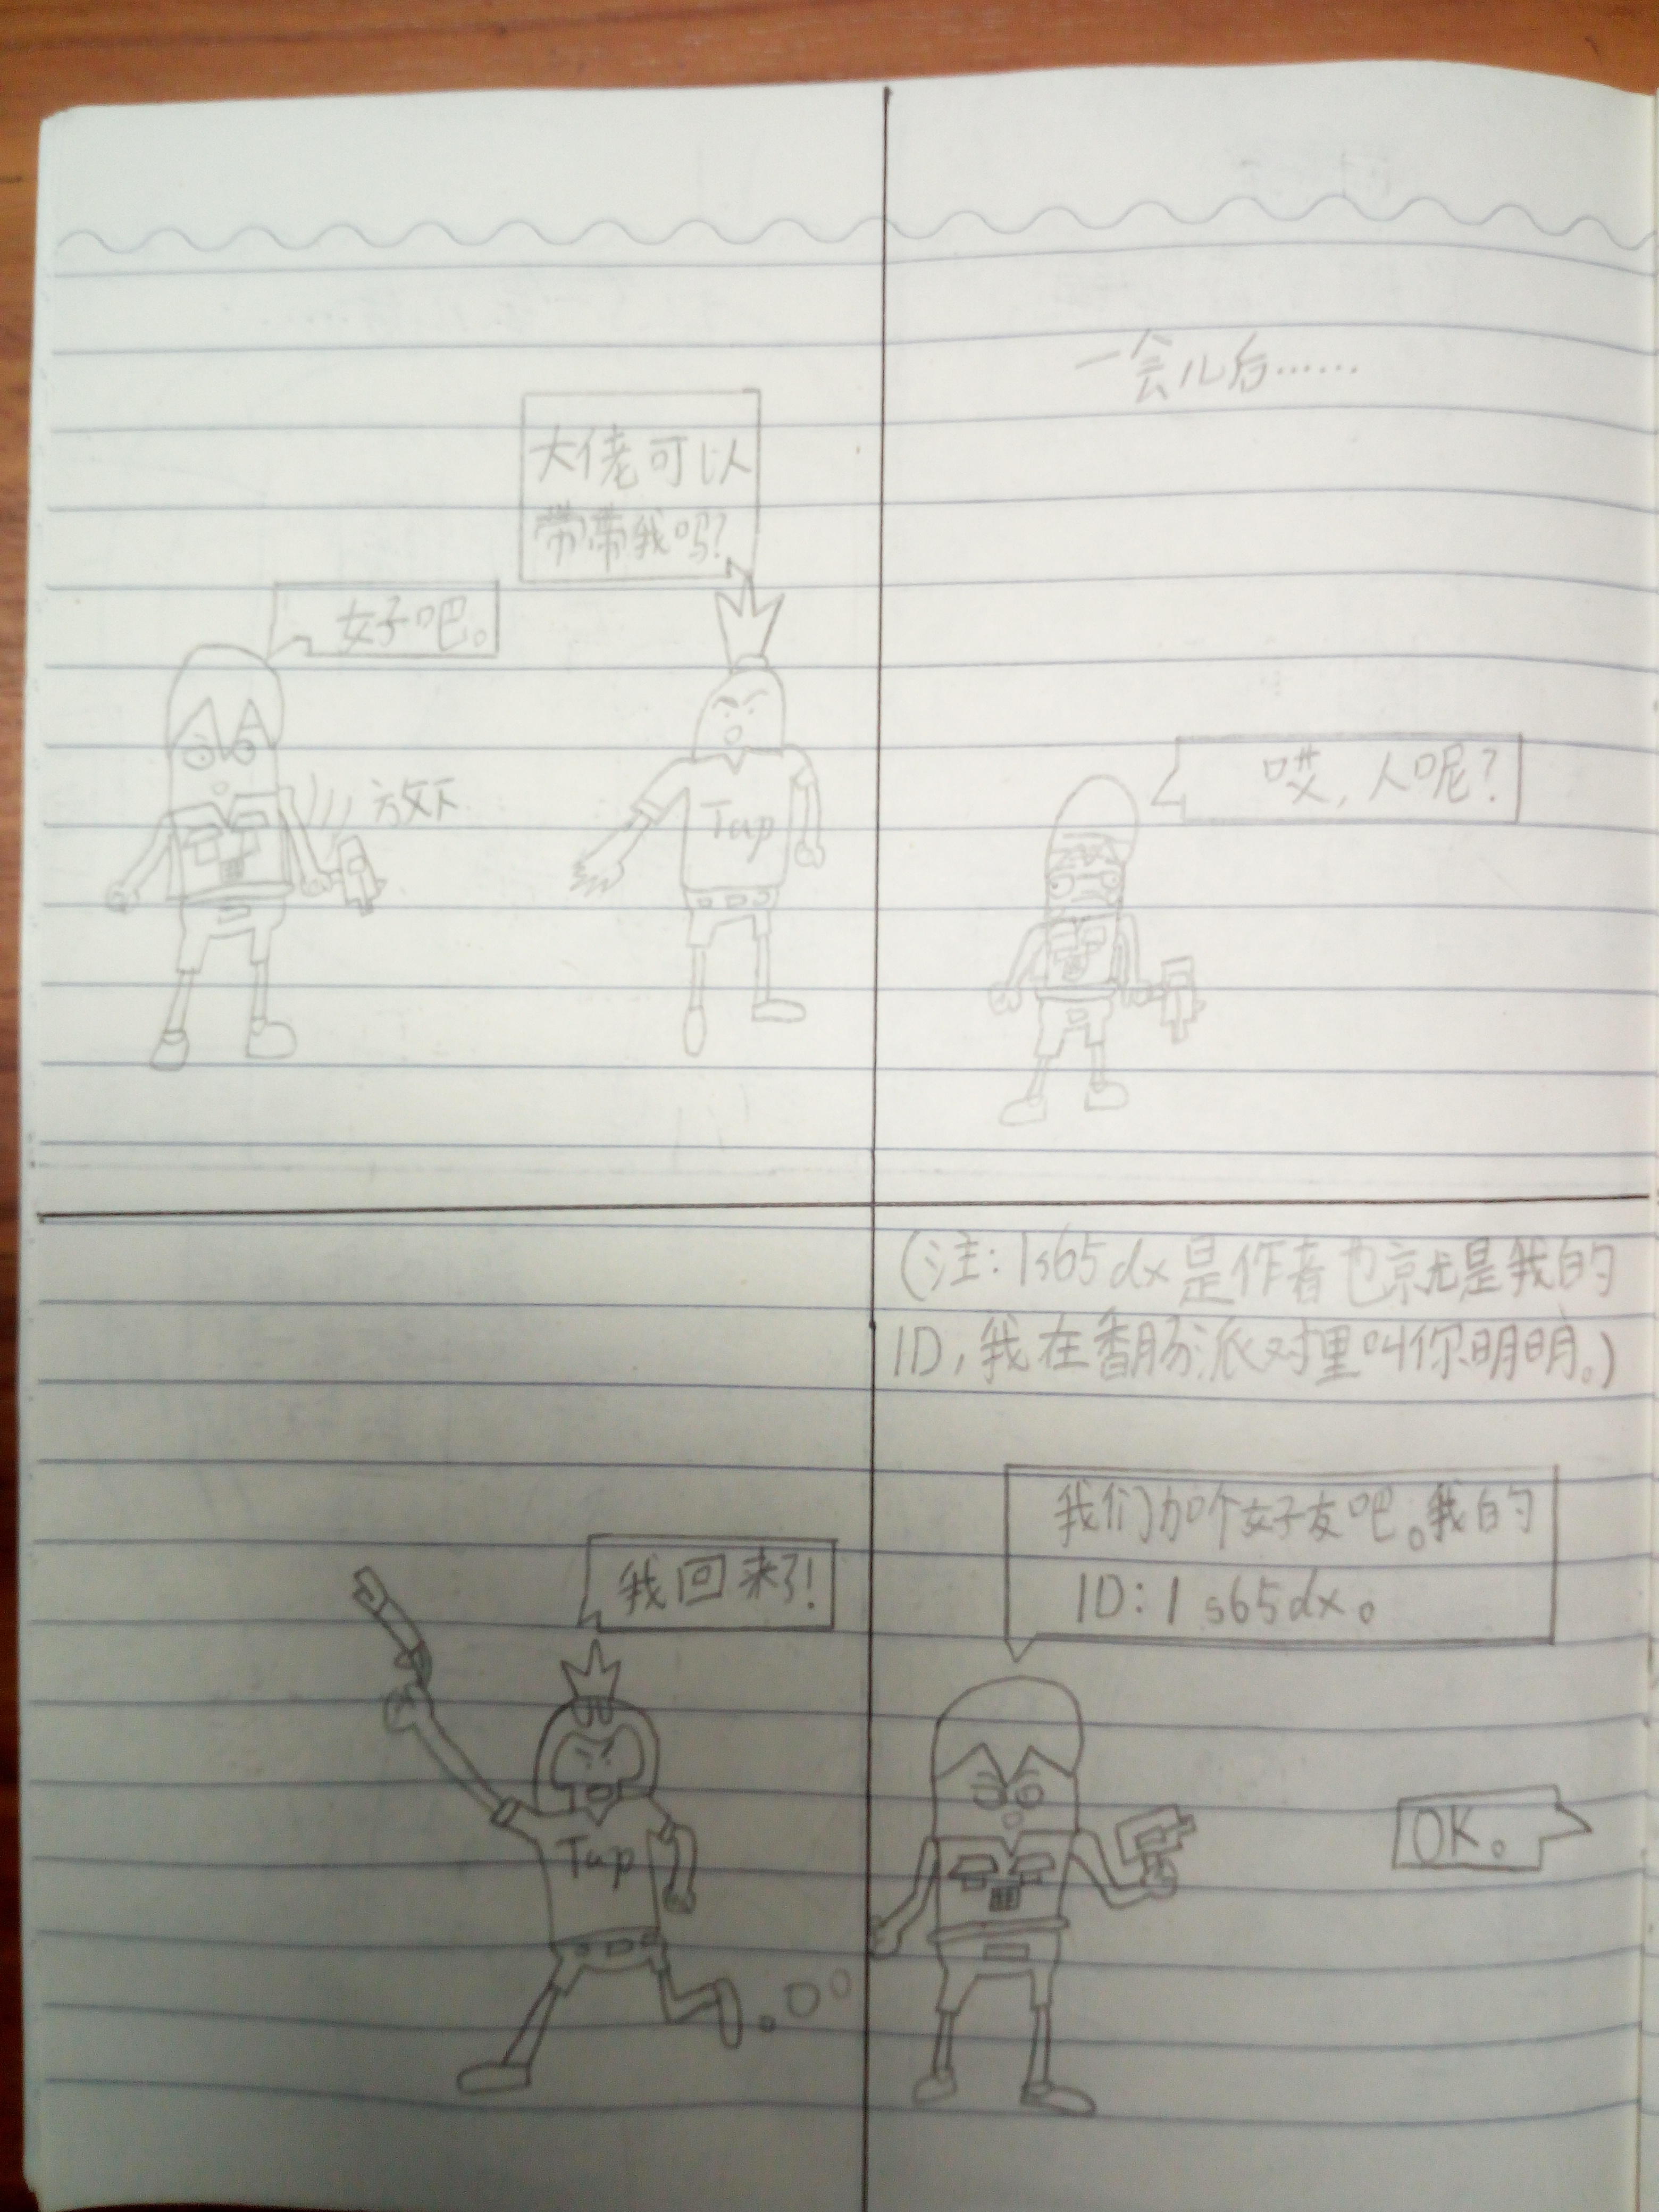 大佬可以
带带我吗?
好吧。
放下
Tap
一会儿后……
哎,人呢?
我回来了!
Tap
(注:1s65dx是作者也就是我的
ID,我在香肠派对里叫你明明。)
我们加个好友吧。我的
ID:1s65dx。
OK。